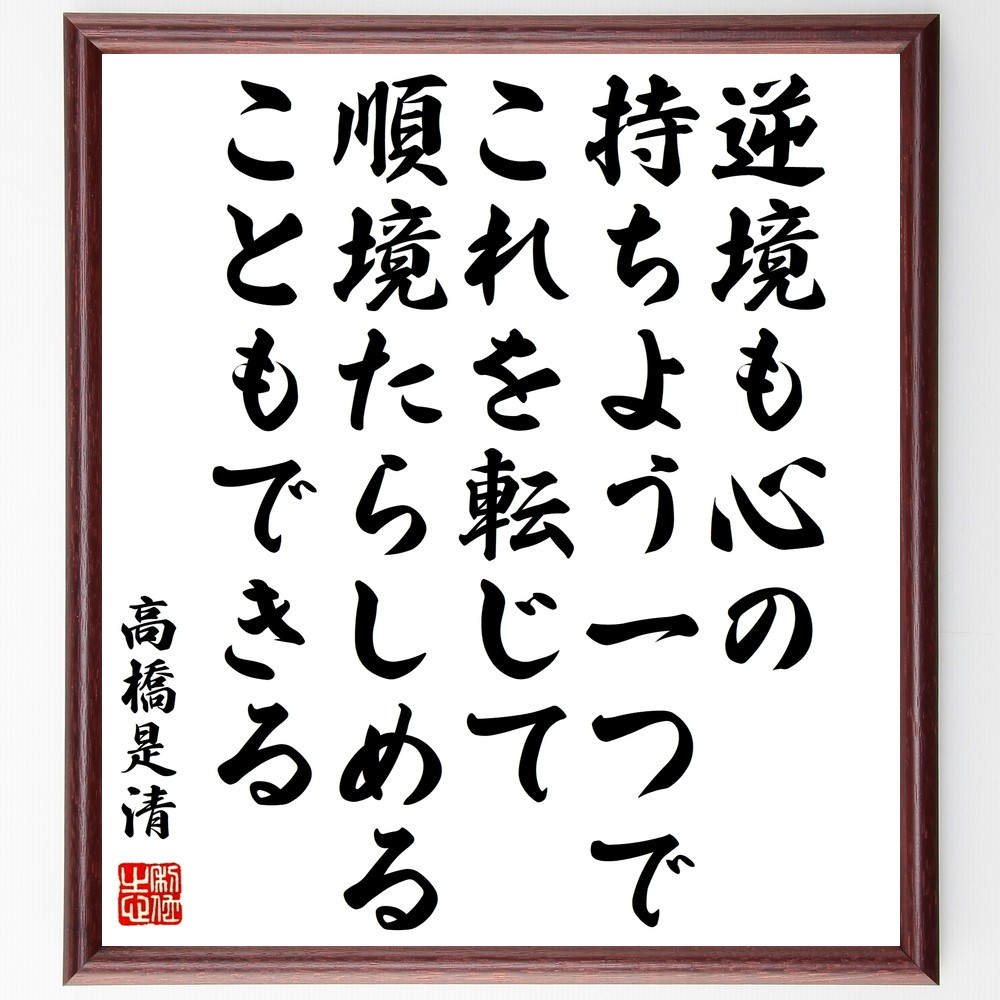 逆境も心の
持ちよう一つで
これを転じて
順境たらしめる
こともできる
高橋是清